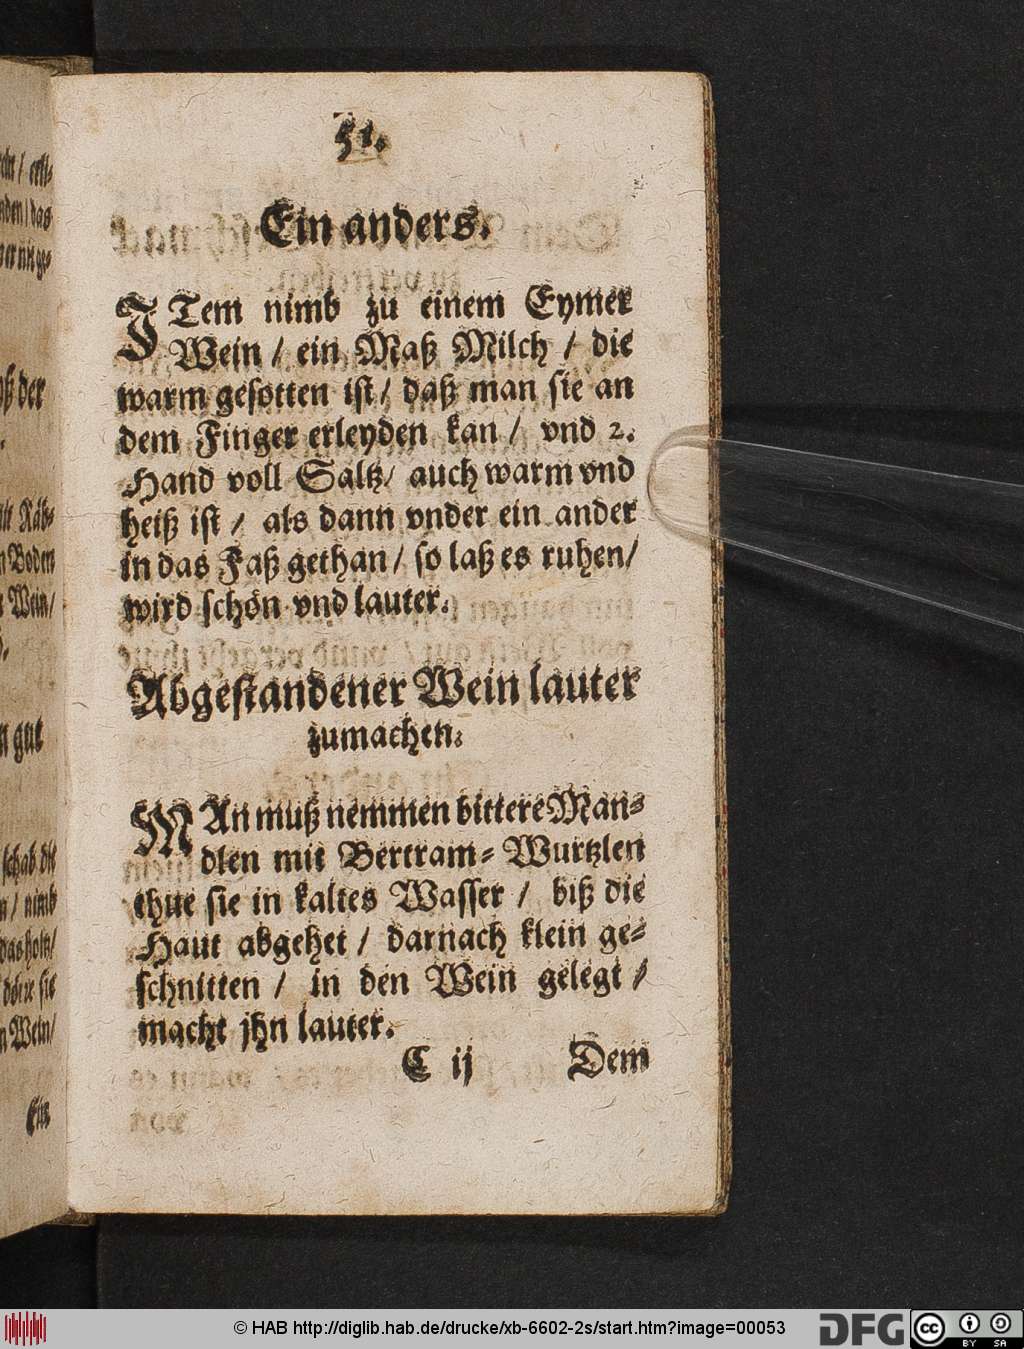 51.
Ein anders.
ITem nimb zu einem Eymer
Wein / ein Maß Milch / die
warm gesotten ist / daß man sie an
dem Finger erleyden kan / vnd 2.
Hand voll Saltz / auch warm vnd
heiß ist / als dann vnder ein ander
in das Faß gethan / so laß es ruhen /
wird schön vnd lauter.
Abgestandener Wein lauter
zumachen.
MAn muß nemmen bittere Man-
dlen mit Bertram-Wurtzlen
thue sie in kaltes Wasser / biß die
Haut abgehet / darnach klein ge-
schnitten / in den Wein gelegt /
macht jhn lauter.
C ij Dem
der
Näb-
Boden
Wein /
gut
schab die
/ nimb
sie
Wein /
© HAB http://diglib.hab.de/drucke/xb-6602-2s/start.htm?image=00053
DFG
cc
BY SA